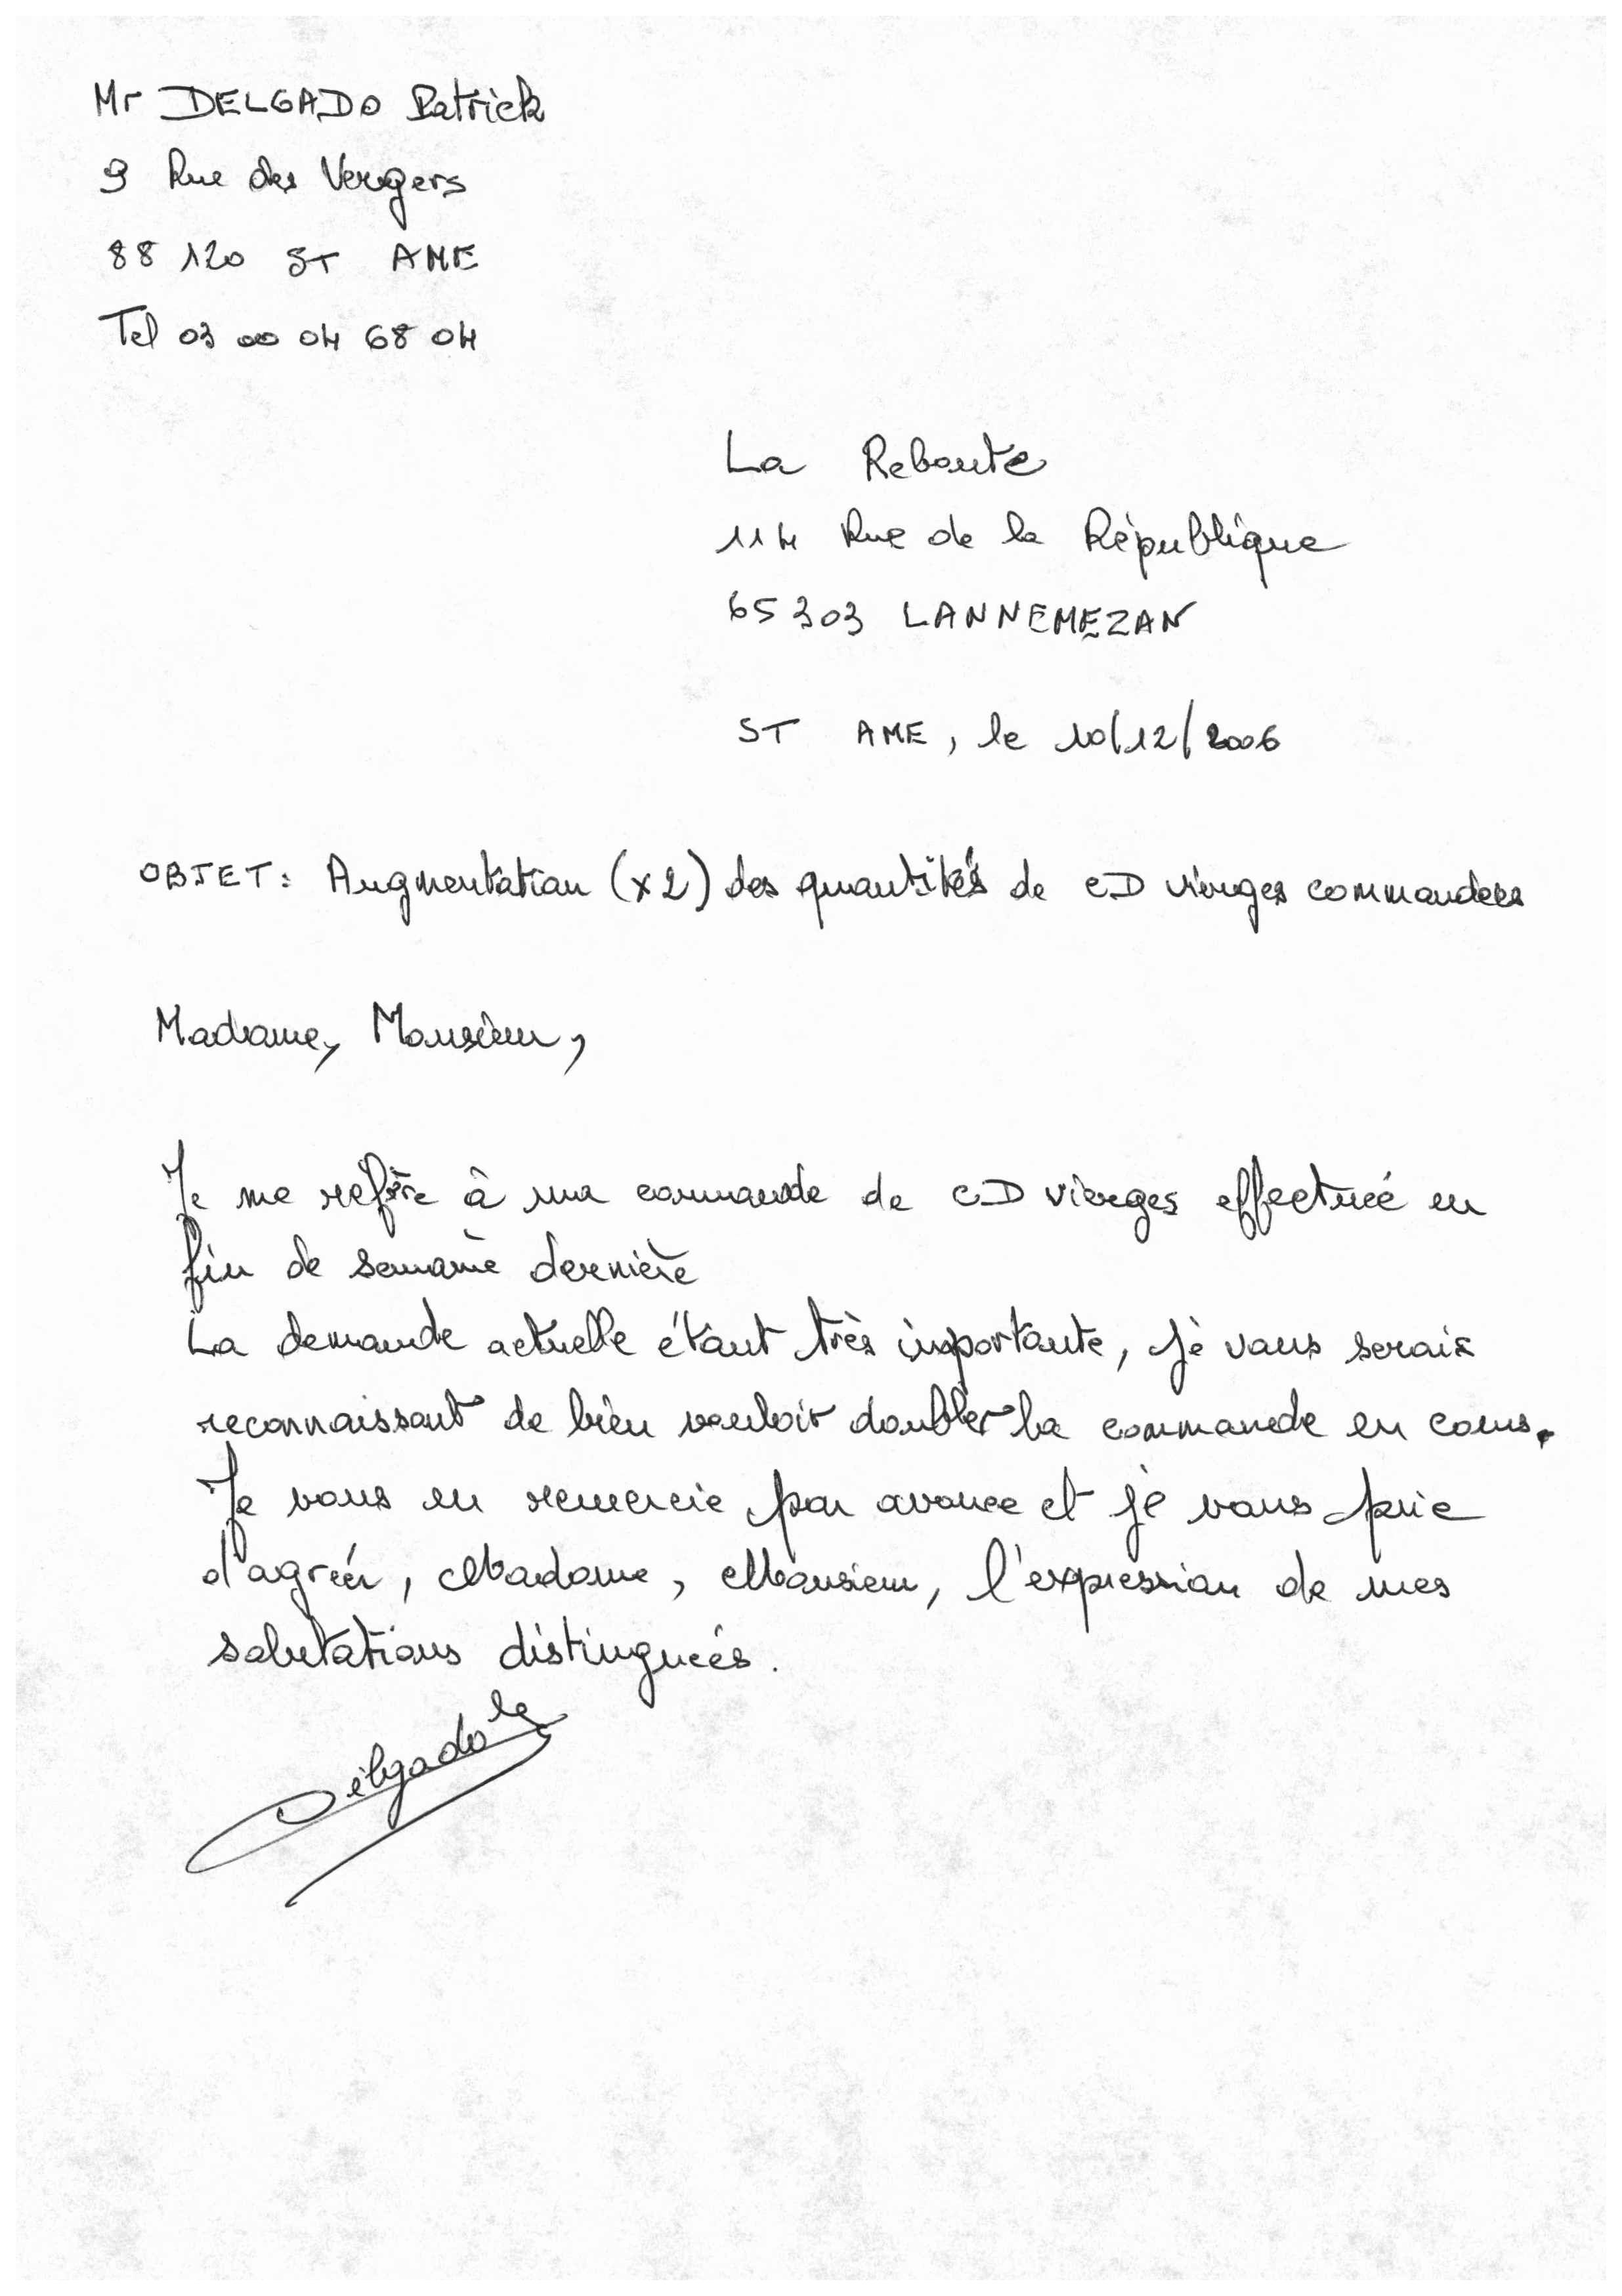 Mr DELGADO Patrick
9 Rue des Vergers
88 120 ST AME
Tel 03 00 04 68 04
La Reboute
114 Rue de la République
65 303 LANNEMEZAN
ST AME, le 10/12/2006
OBJET: Augmentation (x2) des quantités de CD vierges commandées
Madame, Monsieur,
Je me refère à ma commande de CD vierges effectuée en
fin de semaine dernière
La demande actuelle étant très importante, je vous serais
reconnaissant de bien vouloir doubler la commande en cours.
Je vous en remercie par avance et je vous prie
d'agréer, Madame, Monsieur, l'expression de mes
salutations distinguées.
Delgado